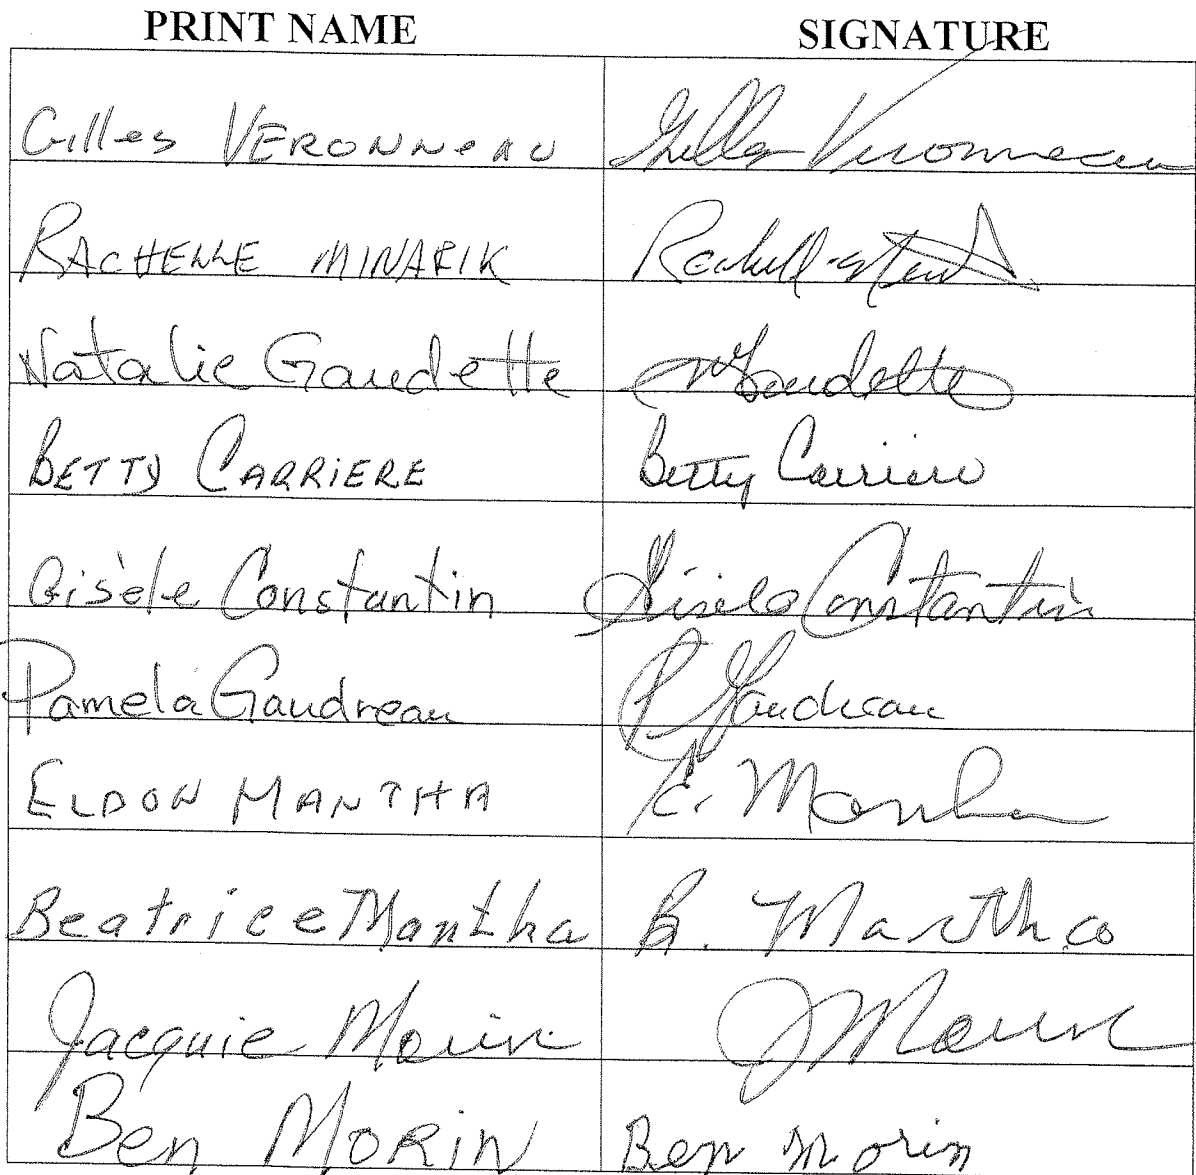 PRINT NAME SIGNATURE
Gilles VERONNEAU Gilles Veronneau
RACHELLE MINARIK Rachell
Natalie Gaudette NGaudette
BETTY CARRIERE Betty Carriere
Gisèle Constantin Gisele Constantin
Pamela Gaudreau P Gaudreau
ELDON MANTHA E. Mantha
Beatrice Mantha B. Mantha
Jacquie Morin JMorin
Ben MORIN Ben Morin